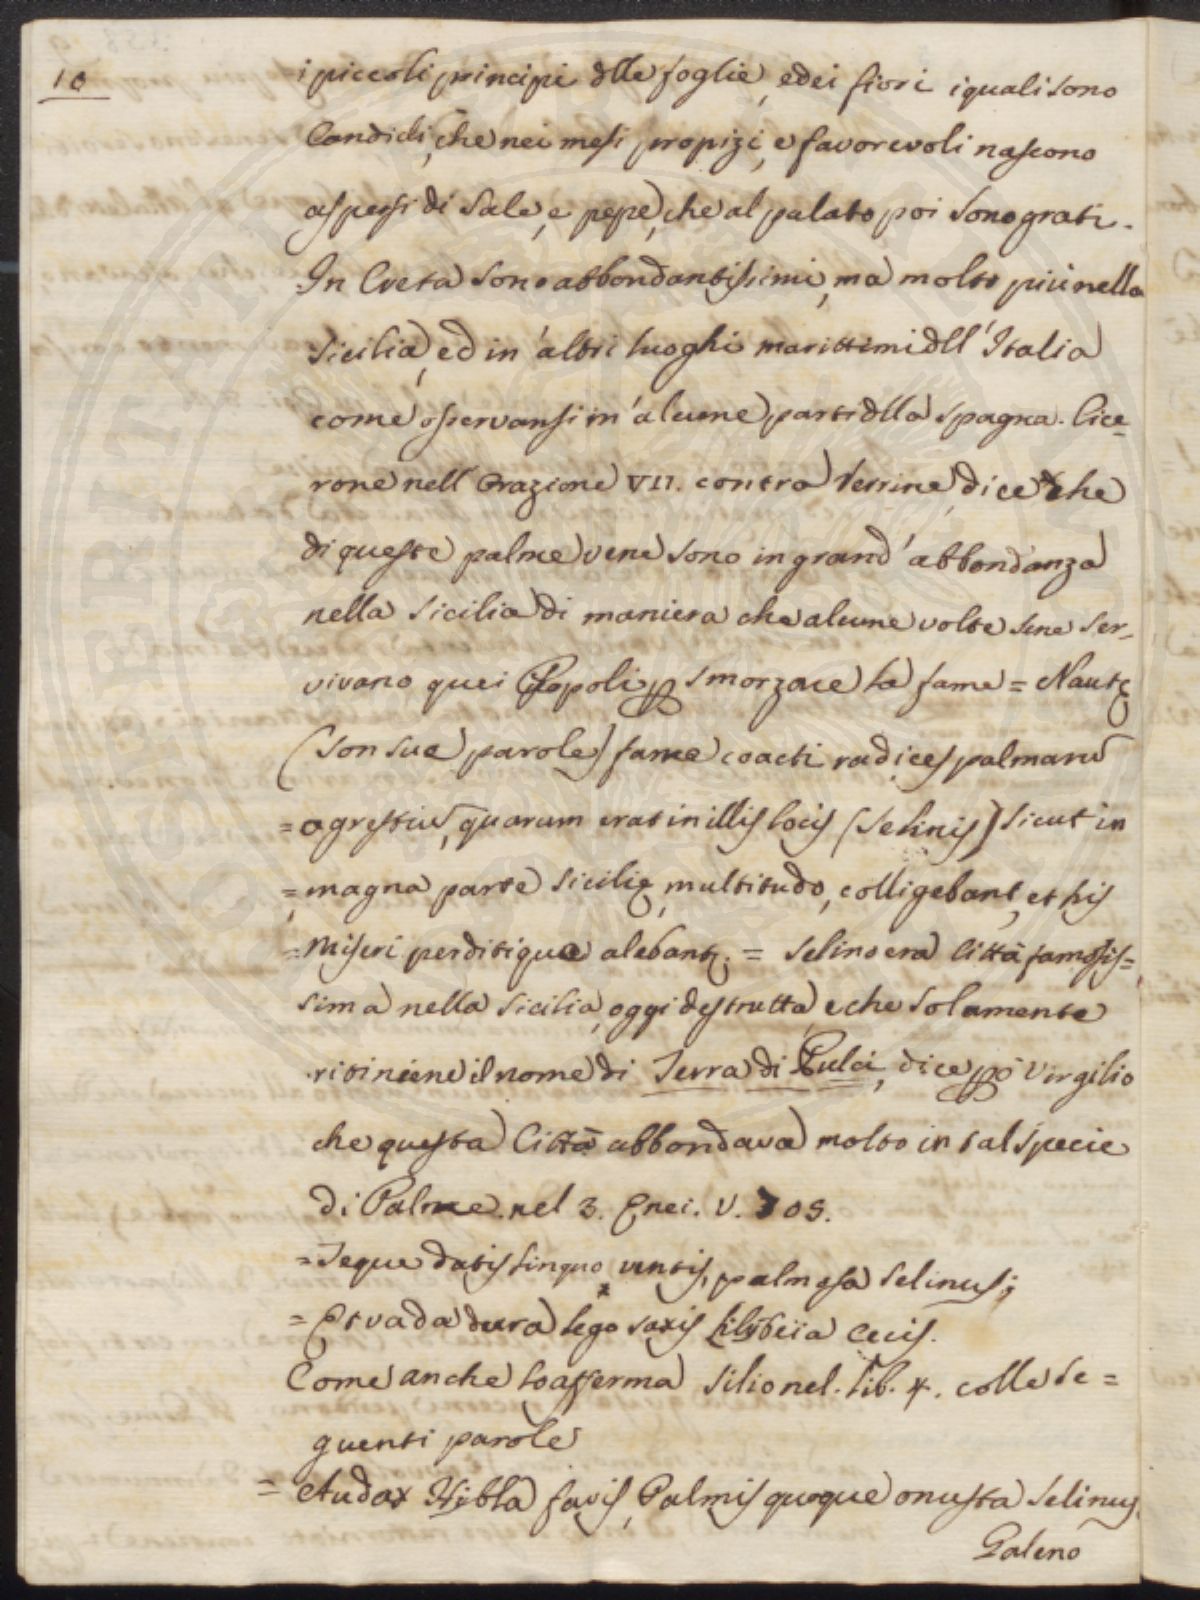 10
i piccoli principi dlle foglie, e dei fiori i quali sono
Candidi, che nei mesi propizi, e favorevoli nascono
aspersi di Sale, e pepe, che al palato poi sono grati.
In Creta sono abbondantissimi, ma molto più nella
Sicilia, ed in'altri luoghi marittimi dll'Italia
come osservansi in'alcune parti dlla Spagna. Cice=
rone nell Orazione VII. contra Verrine, dice che
di queste palme vene sono in grand'abbondanza
nella Sicilia di maniera che alcune volte sene ser=
vivano quei Popoli p smorzare la fame = Nautę
(son sue parole) fame coacti radices palmarū
=agrestiū, quarum erat in illis locis (Selinis) sicut in
=magna parte Sicilię, multitudo, colligebant, et his
=Miseri perditique alebant. = Selino era Città famosis=
sima nella Sicilia, oggi destrutta, e che solamente
ritiniene il nome di Terra di Pulci, dice Virgilio
che questa Città abbondava molto in tal specie
di Palme nel 3. Enei. V. 705.
=Teque datis linquo ventis, palmosa Selinus;
=Et vada dura lego saxis Lilybeïa Cecis.
Come anche lo afferma Silio nel. Lib. 4. colle se=
guenti parole
= Audax Hybla favis, Palmis quoque onusta Selinus.
Galeno